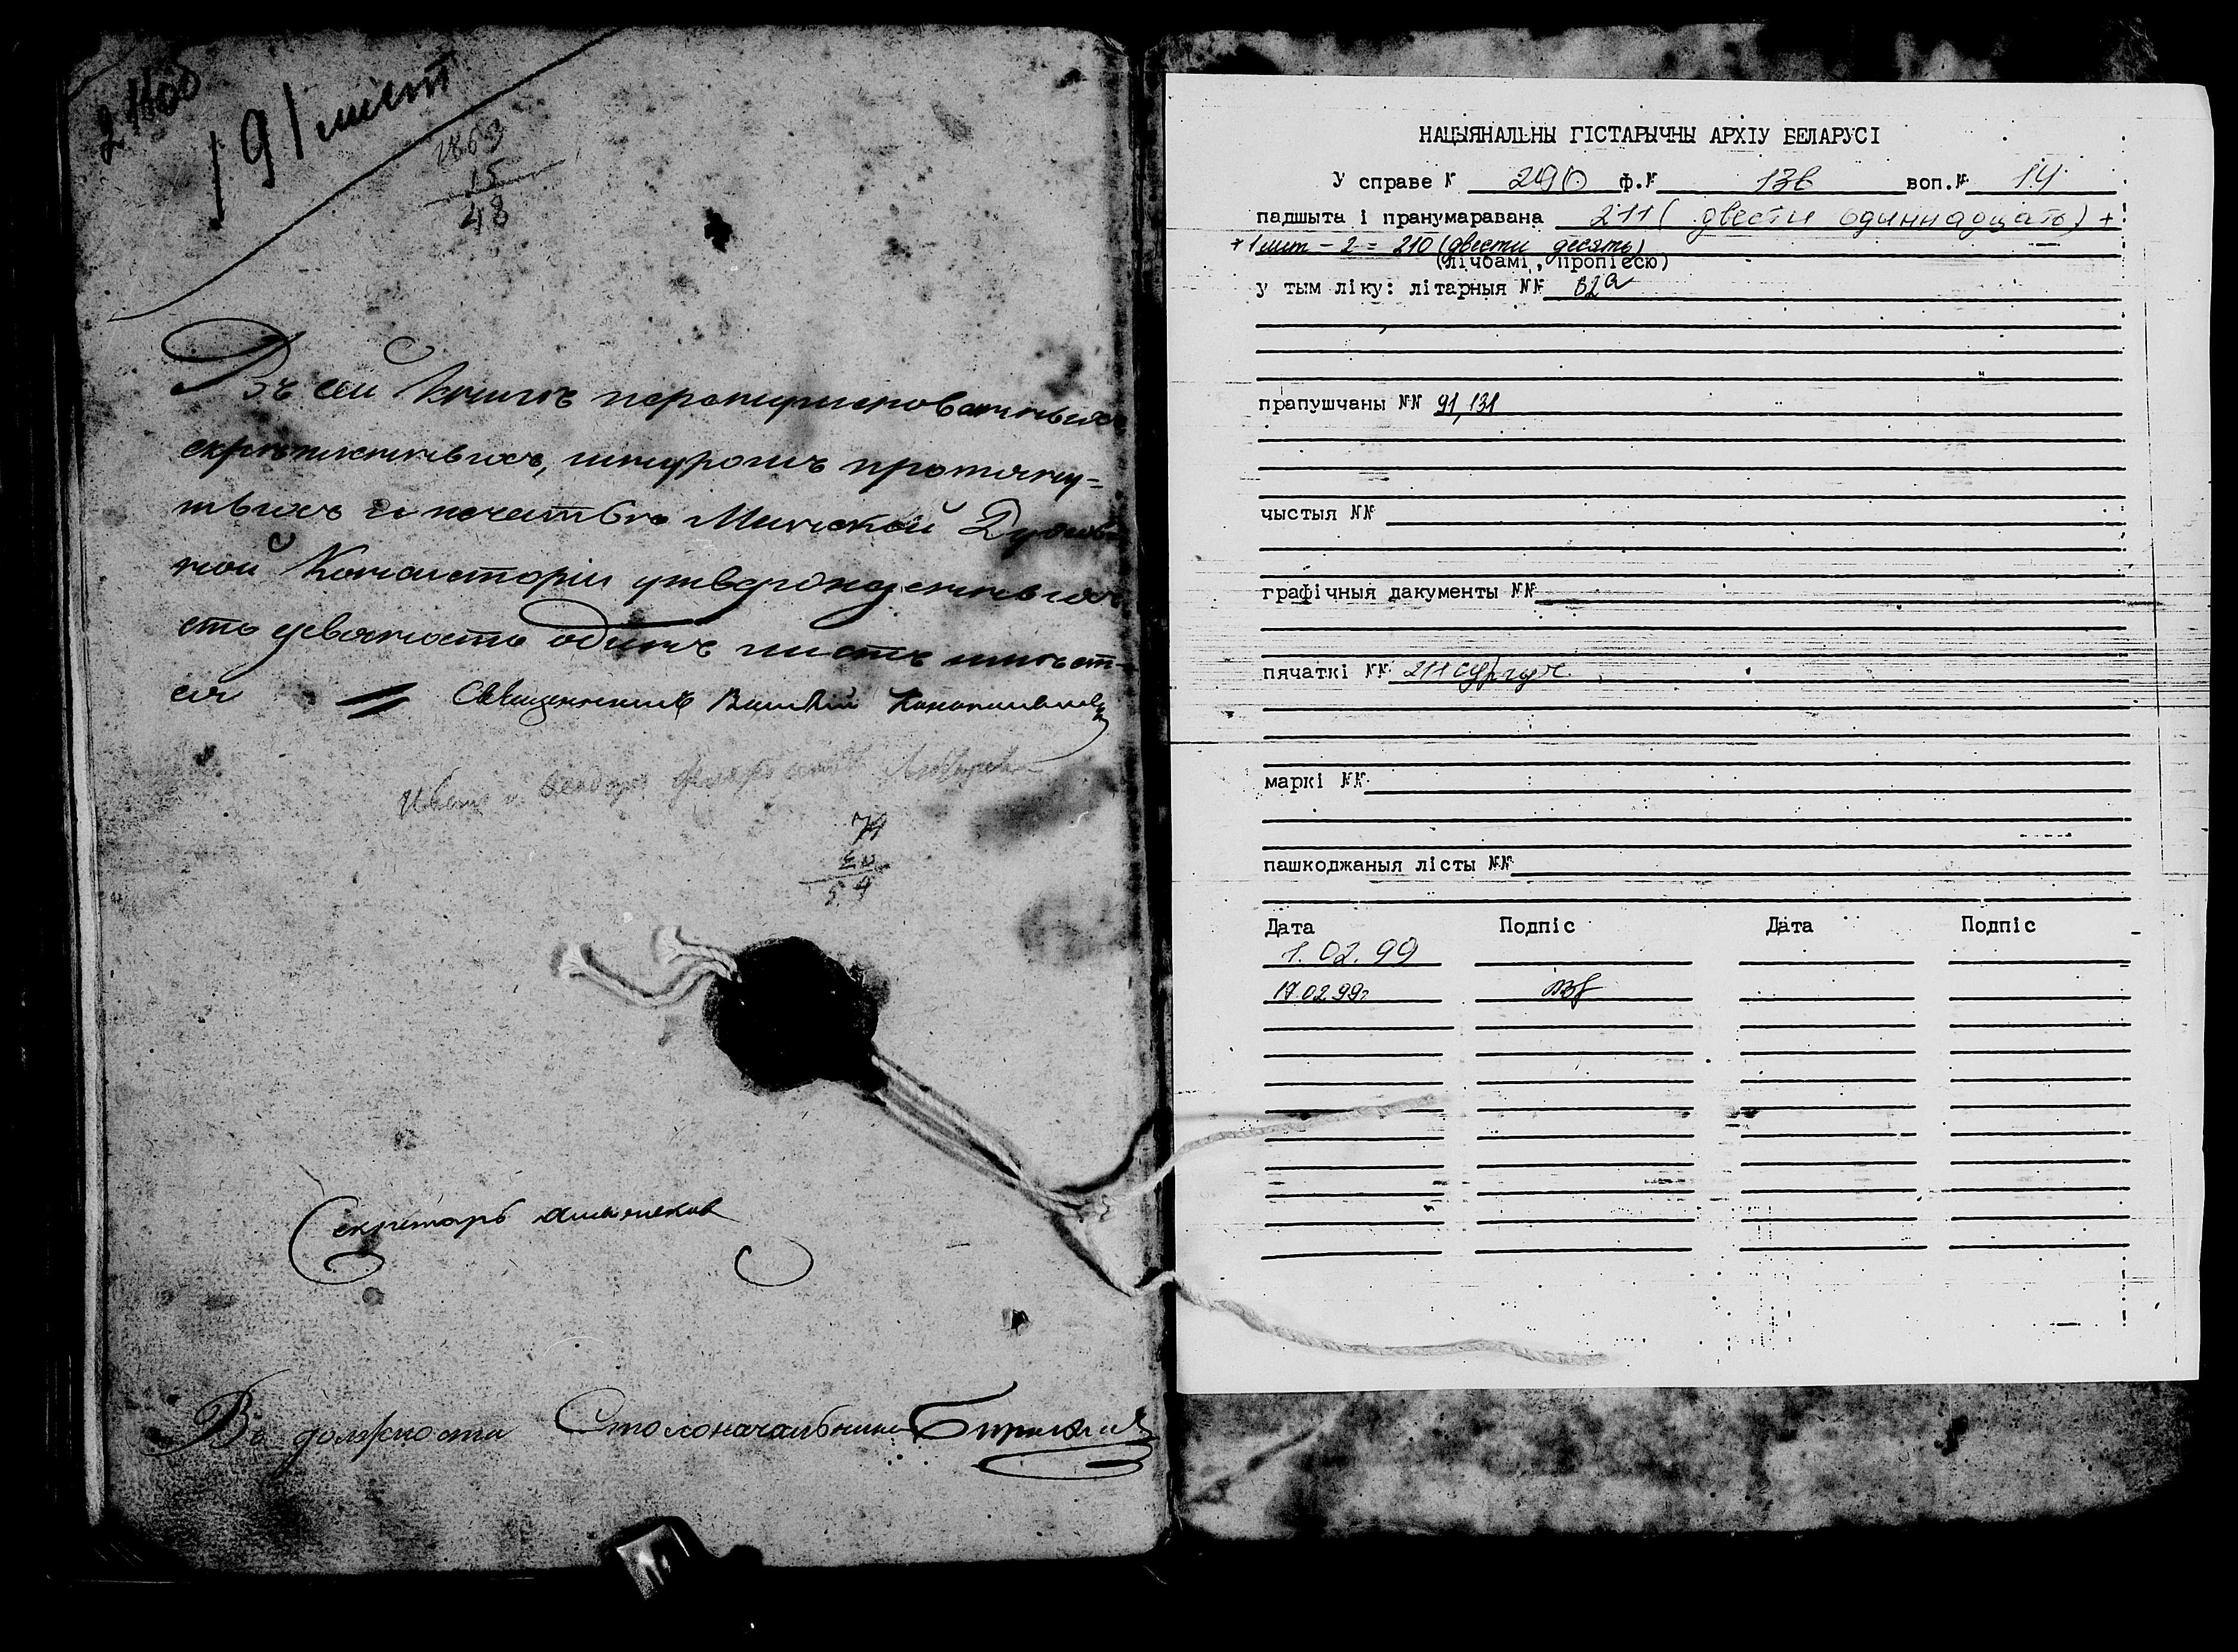 191 лист
1863
15
48
Въ сей Книгѣ перенумерованныхъ
скрѣпленныхъ, шнуромъ протяну=
тыхъ и печатью Минской Духов-
ной Консисторіи утвержденныхъ
сто девяносто одинъ листъ имѣет-
ся
Священникъ
Секретарь
Въ должности Столоначальника
НАЦЫЯНАЛЬНЫ ГІСТАРЫЧНЫ АРХІУ БЕЛАРУСІ
У справе № 290 ф.№ 136 воп.№ 14
падшыта і пранумаравана 211 (двести одиннадцать) +
+ 1 лит - 2 = 210 (двести десять)
(лічбамі, пропіссю)
у тым ліку: літарныя №№ 82а
прапушчаны №№ 91, 131
чыстыя №№
графічныя дакументы №№
пячаткі №№ 211 сургуч.
маркі №№
пашкоджаныя лісты №№
Дата Подпіс Дата Подпіс
1.02.99
17.02.99г